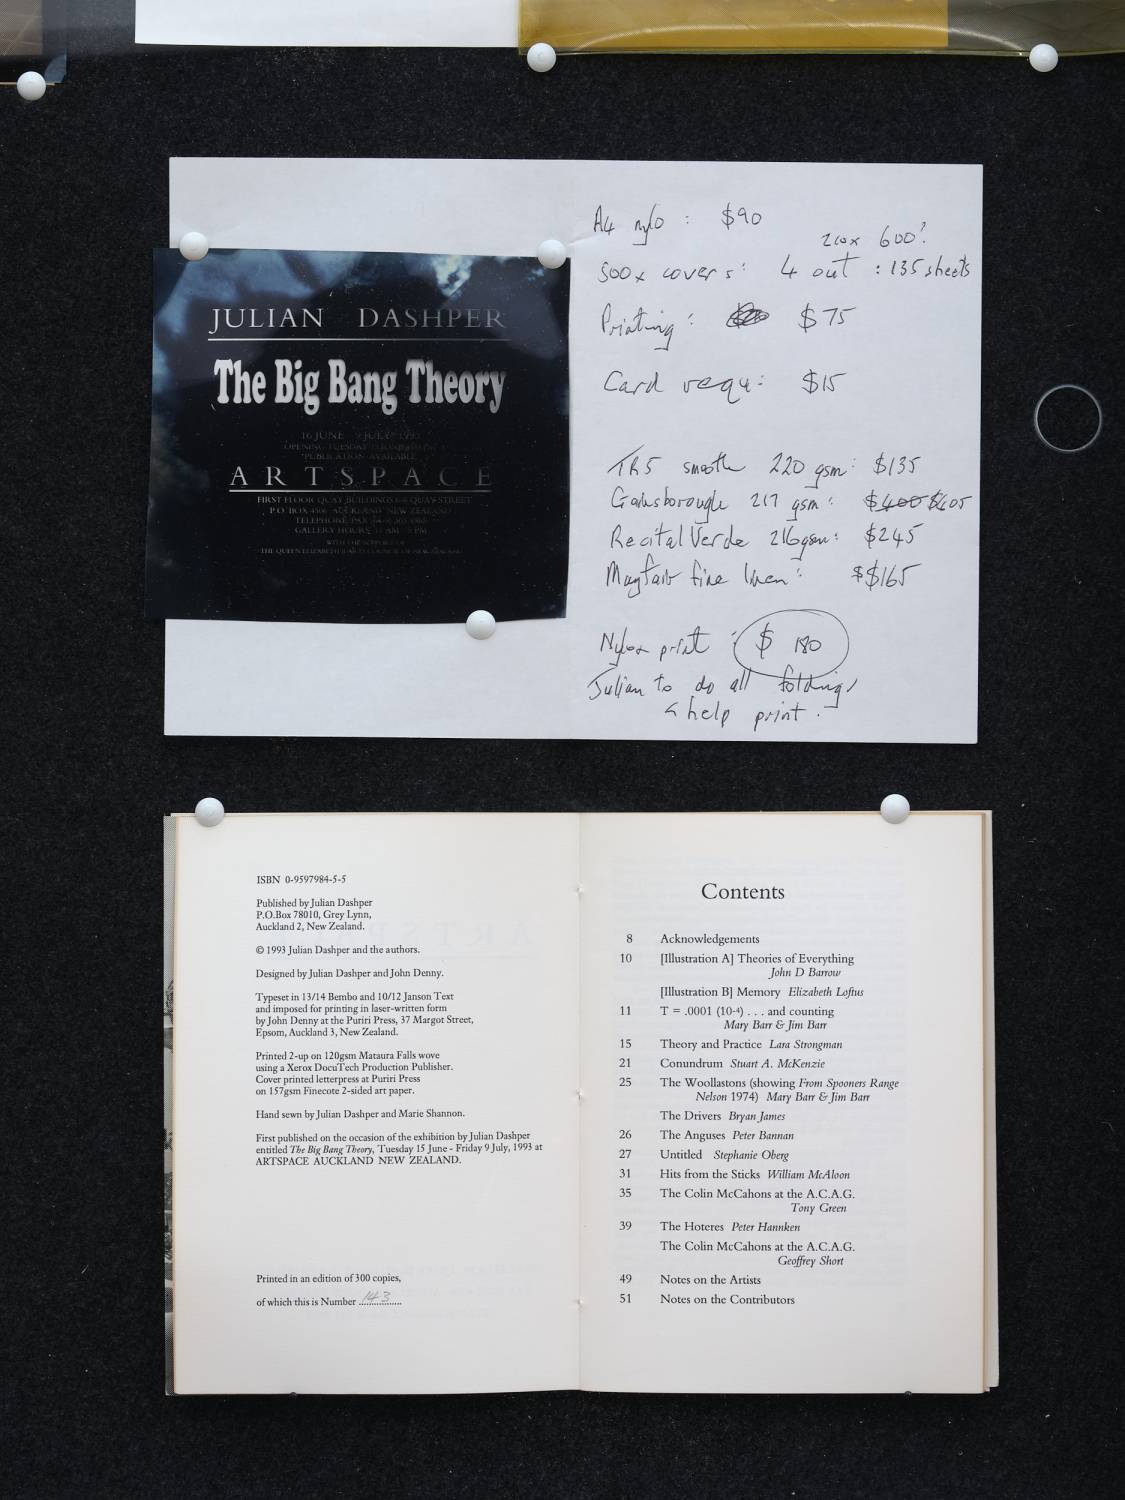 JULIAN DASHPER
The Big Bang Theory
16 JUNE 9 JULY 1993
ARTSPACE
FIRST FLOOR QUAY BUILDINGS 6-8 QUAY STREET
P.O. BOX AUCKLAND NEW ZEALAND
TELEPHONE/FAX
GALLERY HOURS 11 AM PM
WITH THE SUPPORT OF
THE QUEEN ELIZABETH II ARTS COUNCIL OF NEW ZEALAND
A4 nylo : $90
210x 600?
500x covers: 4 out : 135 sheets
Printing: $75
Card requ: $15
TR5 smooth 220 gsm: $135
Gainsborough 217 gsm: $400 $405
Recital Verde 216gsm: $245
Mayfair fine linen: $$165
Nylox print : $ 180
Julian to do all folding,
& help print.
ISBN 0-9597984-5-5
Published by Julian Dashper
P.O.Box 78010, Grey Lynn,
Auckland 2, New Zealand.
© 1993 Julian Dashper and the authors.
Designed by Julian Dashper and John Denny.
Typeset in 13/14 Bembo and 10/12 Janson Text
and imposed for printing in laser-written form
by John Denny at the Puriri Press, 37 Margot Street,
Epsom, Auckland 3, New Zealand.
Printed 2-up on 120gsm Mataura Falls wove
using a Xerox DocuTech Production Publisher.
Cover printed letterpress at Puriri Press
on 157gsm Finecote 2-sided art paper.
Hand sewn by Julian Dashper and Marie Shannon.
First published on the occasion of the exhibition by Julian Dashper
entitled The Big Bang Theory, Tuesday 15 June - Friday 9 July, 1993 at
ARTSPACE AUCKLAND NEW ZEALAND.
Printed in an edition of 300 copies,
of which this is Number 143
Contents
8 Acknowledgements
10 [Illustration A] Theories of Everything
John D Barrow
[Illustration B] Memory Elizabeth Loftus
11 T = .0001 (10-4) . . . and counting
Mary Barr & Jim Barr
15 Theory and Practice Lara Strongman
21 Conundrum Stuart A. McKenzie
25 The Woollastons (showing From Spooners Range
Nelson 1974) Mary Barr & Jim Barr
The Drivers Bryan James
26 The Anguses Peter Bannan
27 Untitled Stephanie Oberg
31 Hits from the Sticks William McAloon
35 The Colin McCahons at the A.C.A.G.
Tony Green
39 The Hoteres Peter Hannken
The Colin McCahons at the A.C.A.G.
Geoffrey Short
49 Notes on the Artists
51 Notes on the Contributors